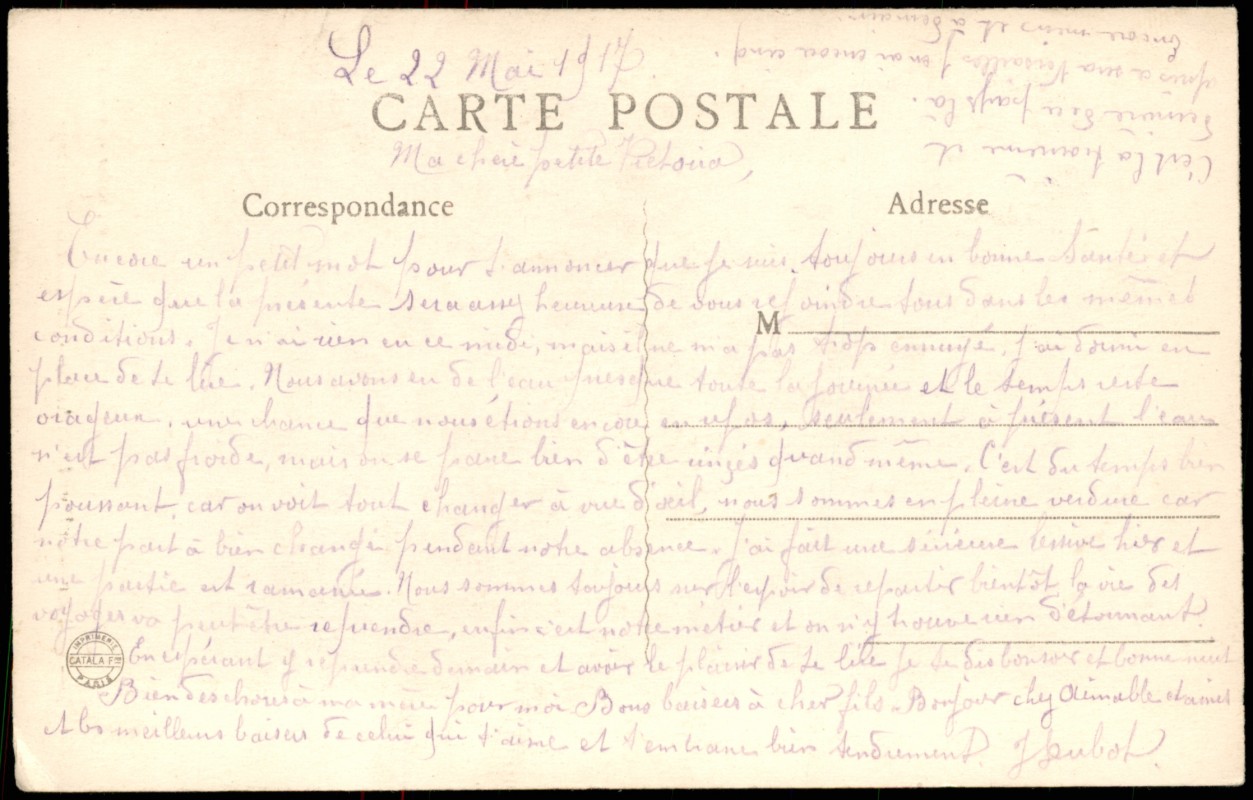 Le 22 Mai 1917.
CARTE POSTALE
Ma chère petite Victoria,
Correspondance
Adresse
Encore un petit mot pour t'annoncer que je suis toujours en bonne santé et
espère que la présente sera assez heureuse de vous rejoindre tous dans les mêmes
M
conditions. Je n'ai rien eu ce midi, mais il ne m'a pas trop ennuyé, j'ai dormi en
place de te lire. Nous avons eu de l'eau presque toute la journée et le temps reste
orageux, une chance que nous étions encore en repos, seulement à présent l'eau
n'est pas froide, mais on se passe bien d'être rincés quand même. C'est du temps bien
poussant, car on voit tout changer à vue d'œil, nous sommes en pleine verdure car
nôtre part à bien changé pendant notre absence. J'ai fait une sérieuse lessive hier et
une partie est ramassée. Nous sommes toujours sur l'espoir de repartir bientôt la vie des
voyages va peut être reprendre, enfin c'est notre métier et on n'y trouve rien d'étonnant.
En espérant y répondre demain et avoir le plaisir de te lire je te dis bonsoir et bonne nuit
Bien des choses à ma mère pour moi Bons baisers à cher fils. Bonjour chez Aimable et amis
et les meilleurs baisers de celui qui t'aime et t'embrasse bien tendrement. J Hubot.
C'est la troisième et
dernière du pays là.
puis a sera Versailles j'en ai encore cinq.
Encore moins et à demain.
IMPRIMERIE
CATALA Fres
PARIS